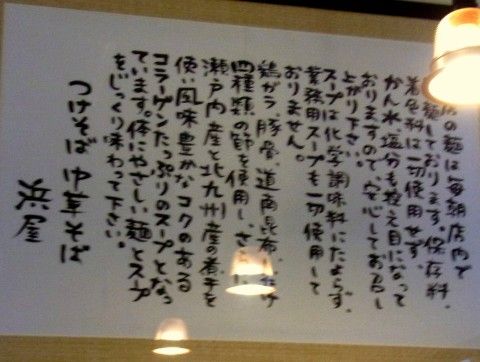 店の麺は毎朝店内で
製麺しております。保存料、
着色料は一切使用せず、
かん水、塩分も控え目になって
おりますので安心してお召し
上がり下さい。
スープは化学調味料にたよらず、
業務用スープも一切使用して
おりません。
鶏ガラ、豚骨、道南昆布、
四種類の節を使用し、さらに
瀬戸内産と北九州産の煮干を
使い風味豊かなコクのある
コラーゲンたっぷりのスープとなっ
ています。体にやさしい麺とスープ
をじっくり味わって下さい。
つけそば 中華そば
浜屋